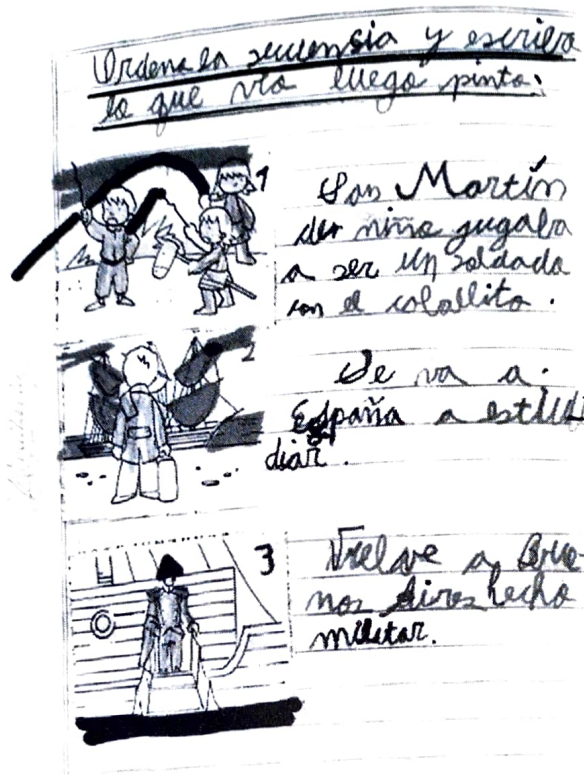 Ordena la secuensia y escriba
lo que vio luego pinta:
1
San Martín
der niño jugaba
a ser un soldado
con el caballito.
2
Se va a
España a estu
diar.
3
Vuelve a Bue-
nos Aires hecho
militar.